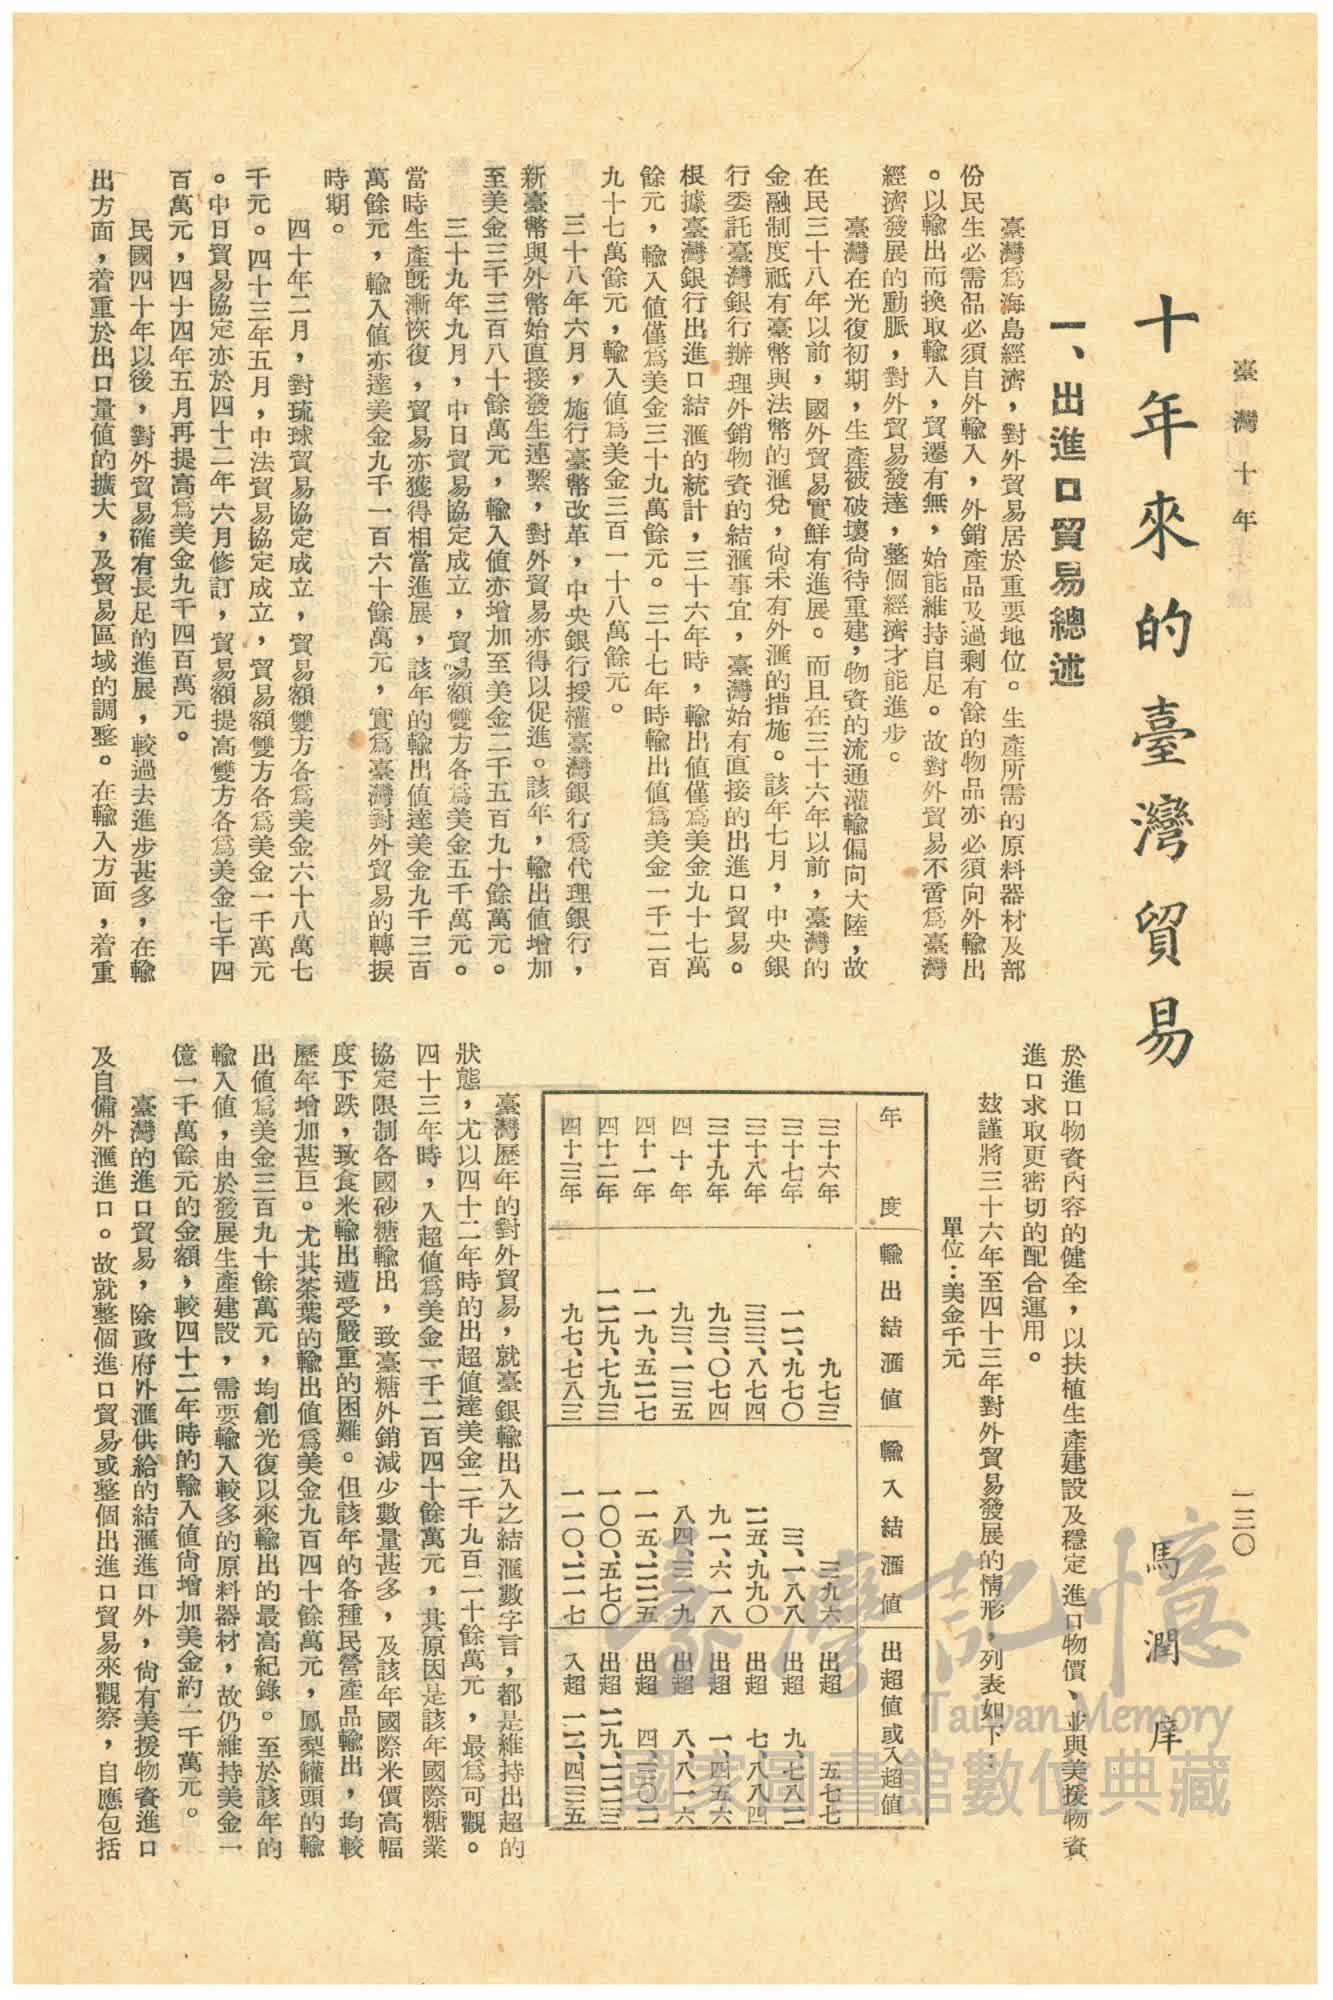 臺灣十年
一三〇
十年來的臺灣貿易
馬潤庠
一、出進口貿易總述
臺灣爲海島經濟，對外貿易居於重要地位。生產所需的原料器材及部
份民生必需品必須自外輸入，外銷產品及過剩有餘的物品亦必須向外輸出
。以輸出而換取輸入，貿遷有無，始能維持自足。故對外貿易不啻爲臺灣
經濟發展的動脈，對外貿易發達，整個經濟才能進步。
臺灣在光復初期，生產被破壞尙待重建，物資的流通灌輸偏向大陸，故
在民三十八年以前，國外貿易實鮮有進展。而且在三十六年以前，臺灣的
金融制度祗有臺幣與法幣的滙兌，尙未有外滙的措施。該年七月，中央銀
行委託臺灣銀行辦理外銷物資的結滙事宜，臺灣始有直接的出進口貿易。
根據臺灣銀行出進口結滙的統計，三十六年時，輸出值僅爲美金九十七萬
餘元，輸入值僅爲美金三十九萬餘元。三十七年時輸出值爲美金一千二百
九十七萬餘元，輸入值爲美金三百一十八萬餘元。
三十八年六月，施行臺幣改革，中央銀行授權臺灣銀行爲代理銀行，
新臺幣與外幣始直接發生連繫，對外貿易亦得以促進。該年，輸出值增加
至美金三千三百八十餘萬元，輸入值亦增加至美金二千五百九十餘萬元。
三十九年九月，中日貿易協定成立，貿易額雙方各爲美金五千萬元。
當時生產旣漸恢復，貿易亦獲得相當進展，該年的輸出值達美金九千三百
萬餘元，輸入值亦達美金九千一百六十餘萬元，實爲臺灣對外貿易的轉捩
時期。
四十年二月，對琉球貿易協定成立，貿易額雙方各爲美金六十八萬七
千元。四十三年五月，中法貿易協定成立，貿易額雙方各爲美金一千萬元
。中日貿易協定亦於四十二年六月修訂，貿易額提高雙方各爲美金七千四
百萬元，四十四年五月再提高爲美金九千四百萬元。
民國四十年以後，對外貿易確有長足的進展，較過去進步甚多，在輸
出方面，着重於出口量值的擴大，及貿易區域的調整。在輸入方面，着重
於進口物資內容的健全，以扶植生產建設及穩定進口物價、並與美援物資
進口求取更密切的配合運用。
玆謹將三十六年至四十三年對外貿易發展的情形，列表如下：
單位：美金千元
年度 輸出結滙值 輸入結滙值 出超值或入超值
三十六年 九七三 三九六 出超 五七七
三十七年 一二、九七〇 三、一八八 出超 九、七八二
三十八年 三三、八七四 二五、九九〇 出超 七、八八四
三十九年 九三、〇七四 九一、六一八 出超 一、四五六
四十年 九三、一三五 八四、三一九 出超 八、八一六
四十一年 一一九、五二七 一一五、二二五 出超 四、三〇二
四十二年 一二九、七九三 一〇〇、五七〇 出超 二九、二二三
四十三年 九七、七八三 一一〇、二一七 入超 一二、四三五
臺灣歷年的對外貿易，就臺銀輸出入之結滙數字言，都是維持出超的
狀態，尤以四十二年時的出超值達美金二千九百二十餘萬元，最爲可觀。
四十三年時，入超值爲美金一千二百四十餘萬元，其原因是該年國際糖業
協定限制各國砂糖輸出，致臺糖外銷減少數量甚多，及該年國際米價高幅
度下跌，致食米輸出遭受嚴重的困難。但該年的各種民營產品輸出，均較
歷年增加甚巨。尤其茶葉的輸出值爲美金九百四十餘萬元，鳳梨罐頭的輸
出值爲美金三百九十餘萬元，均創光復以來輸出的最高紀錄。至於該年的
輸入值，由於發展生產建設，需要輸入較多的原料器材，故仍維持美金一
億一千萬餘元的金額，較四十二年時的輸入值尙增加美金約一千萬元。
臺灣的進口貿易，除政府外滙供給的結滙進口外，尙有美援物資進口
及自備外滙進口。故就整個進口貿易或整個出進口貿易來觀察，自應包括
臺灣記憶
Taiwan Memory
國家圖書館數位典藏